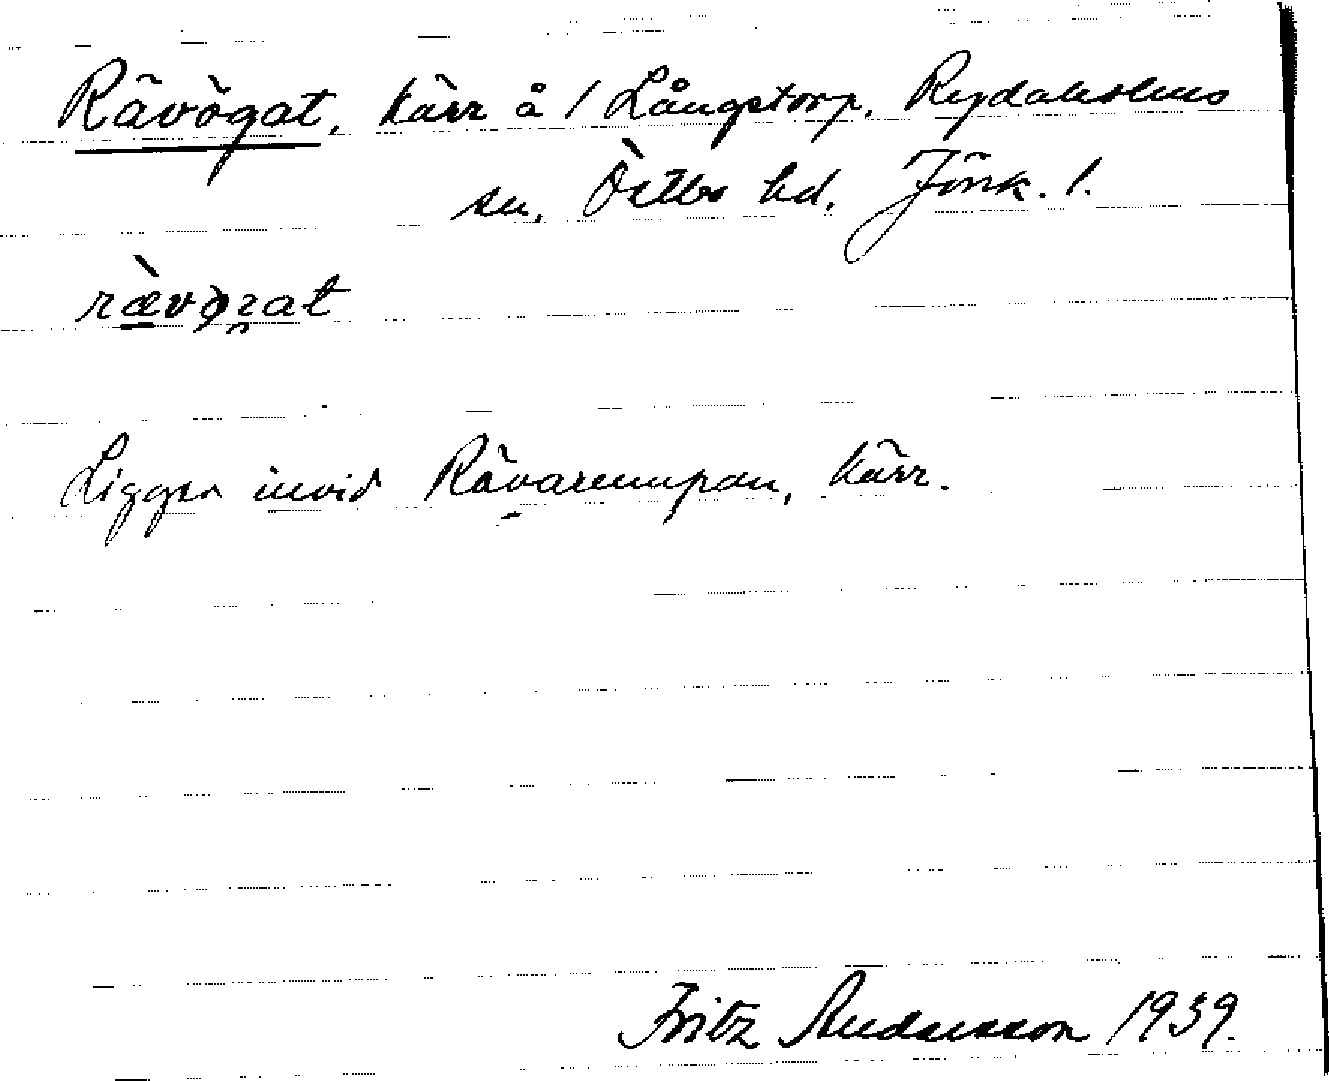 Rävögat, kärr å / Långstorp, Rydaholms
sn, Östbo hd, Jönk. l.
rævögat
Ligger invid Rävarumpan, kärr.
Fritz Andersson 1939.